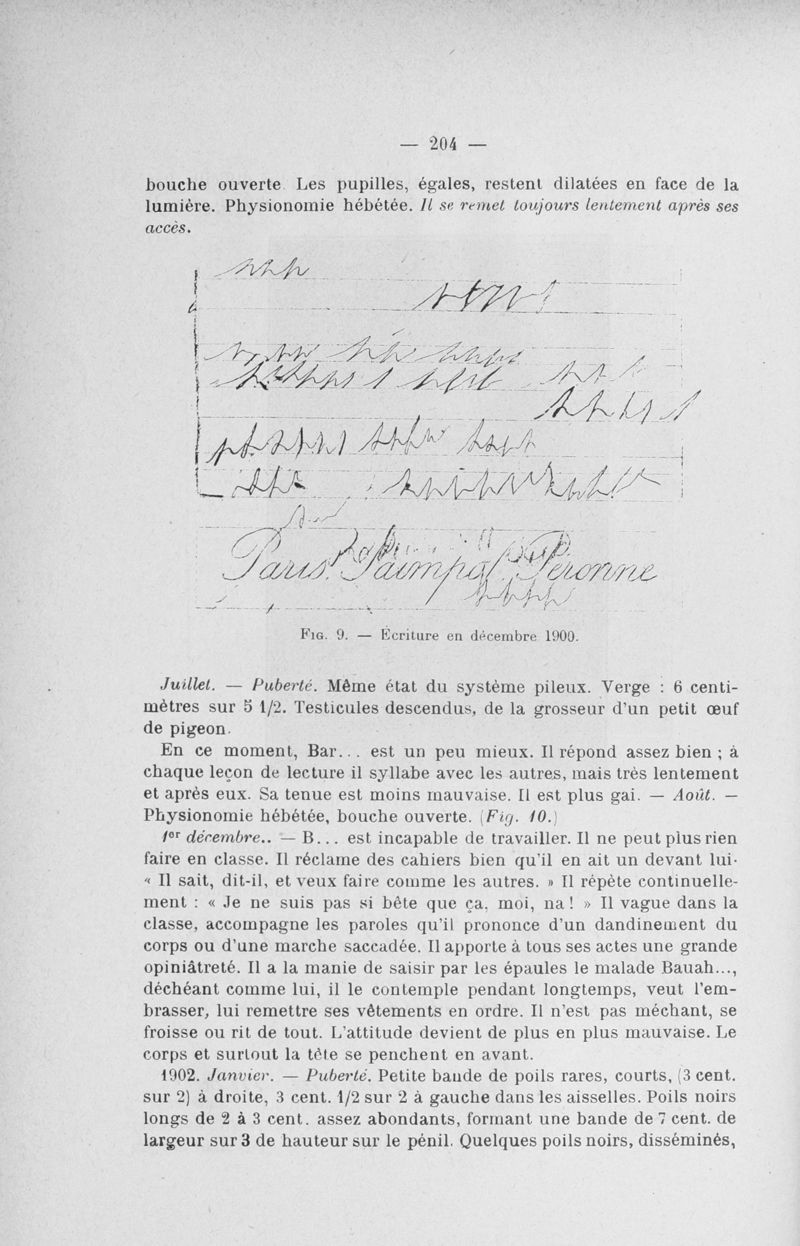 — 204 —
bouche ouverte. Les pupilles, égales, restent dilatées en face de la
lumière. Physionomie hébétée. Il se remet toujours lentement après ses
accès.
Paris. Paimpol Peronne
FIG. 9. — Ecriture en décembre 1900.
Juillet. — Puberté. Même état du système pileux. Verge : 6 centi-
mètres sur 5 1/2. Testicules descendus, de la grosseur d'un petit œuf
de pigeon.
En ce moment, Bar... est un peu mieux. Il répond assez bien ; à
chaque leçon de lecture il syllabe avec les autres, mais très lentement
et après eux. Sa tenue est moins mauvaise. Il est plus gai. — Août. —
Physionomie hébétée, bouche ouverte. (Fig. 10.)
1er décembre.. — B... est incapable de travailler. Il ne peut plus rien
faire en classe. Il réclame des cahiers bien qu'il en ait un devant lui.
« Il sait, dit-il, et veux faire comme les autres. » Il répète continuelle-
ment : « Je ne suis pas si bête que ça, moi, na ! » Il vague dans la
classe, accompagne les paroles qu'il prononce d'un dandinement du
corps ou d'une marche saccadée. Il apporte à tous ses actes une grande
opiniâtreté. Il a la manie de saisir par les épaules le malade Bauah...,
déchéant comme lui, il le contemple pendant longtemps, veut l'em-
brasser, lui remettre ses vêtements en ordre. Il n'est pas méchant, se
froisse ou rit de tout. L'attitude devient de plus en plus mauvaise. Le
corps et surtout la tête se penchent en avant.
1902. Janvier. — Puberté. Petite bande de poils rares, courts, (3 cent.
sur 2) à droite, 3 cent. 1/2 sur 2 à gauche dans les aisselles. Poils noirs
longs de 2 à 3 cent. assez abondants, formant une bande de 7 cent. de
largeur sur 3 de hauteur sur le pénil. Quelques poils noirs, disséminés,